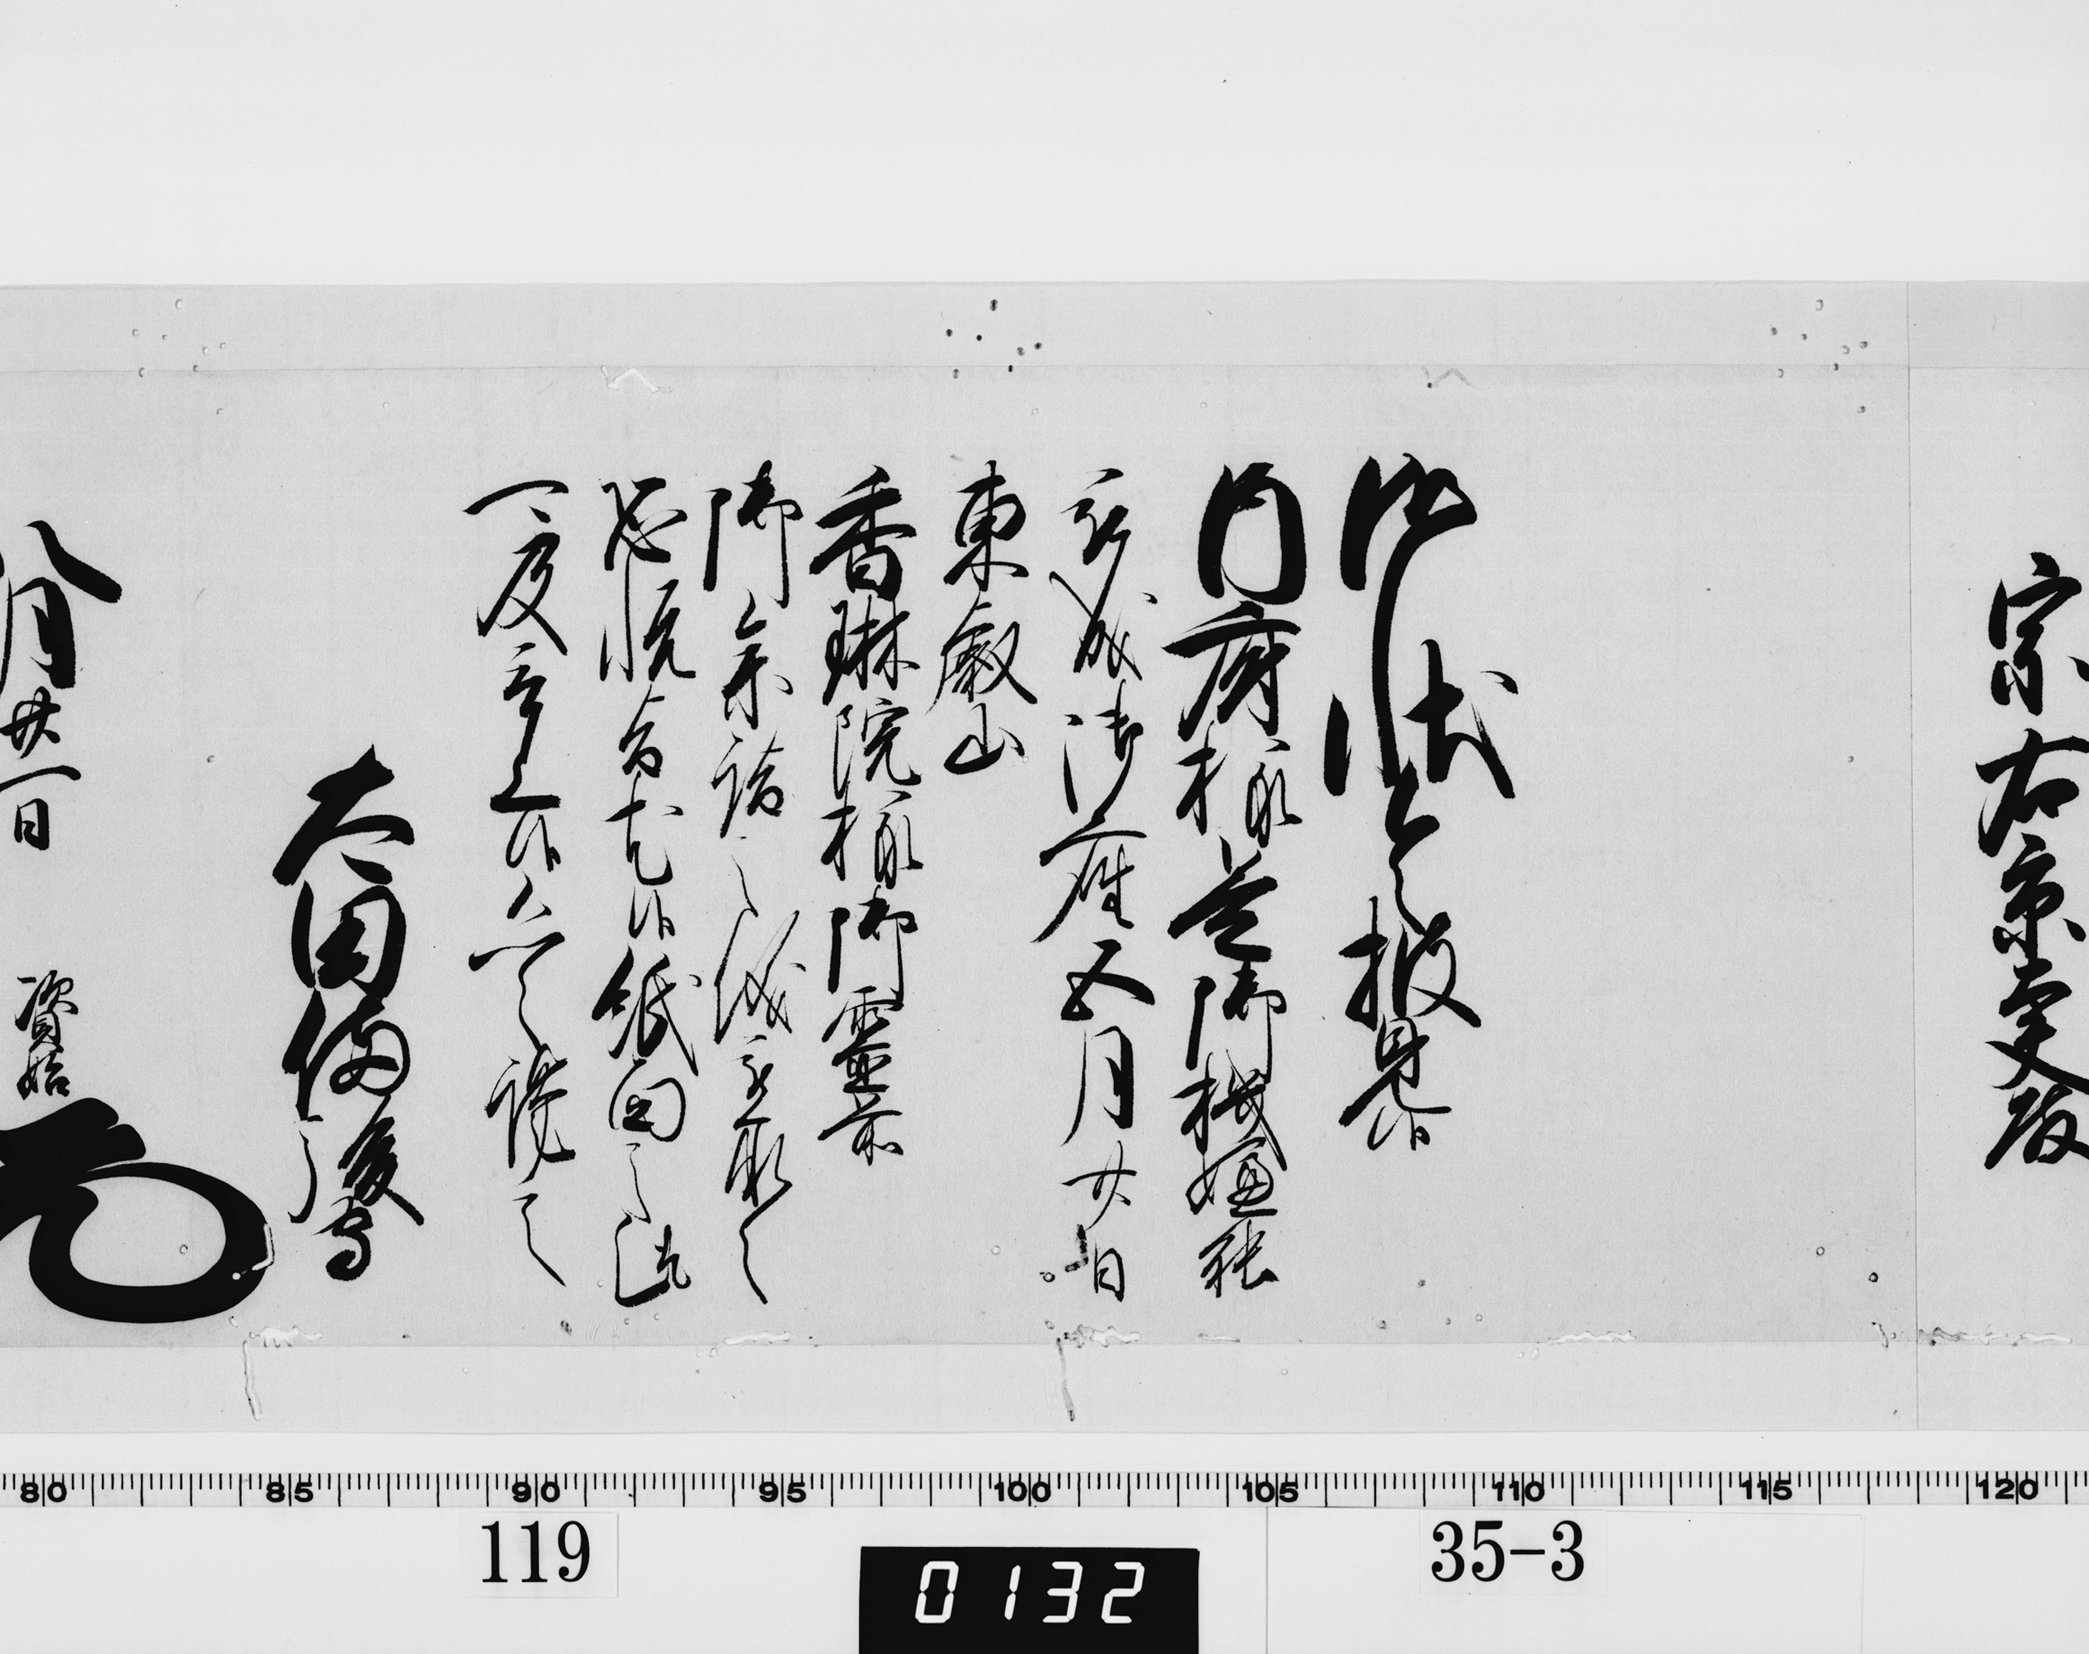 宗右京大夫殿
御状令披見候
内府様益御機嫌能
被成御座五月廿日
東叡山
香琳院様御霊前
御参詣之儀被承之
恐悦旨尤候紙面之趣
可及言上候恐々謹言
太田備後守
八月廿一日 資始
80 85 90 95 100 105 110 115 120
119
0132
35-3